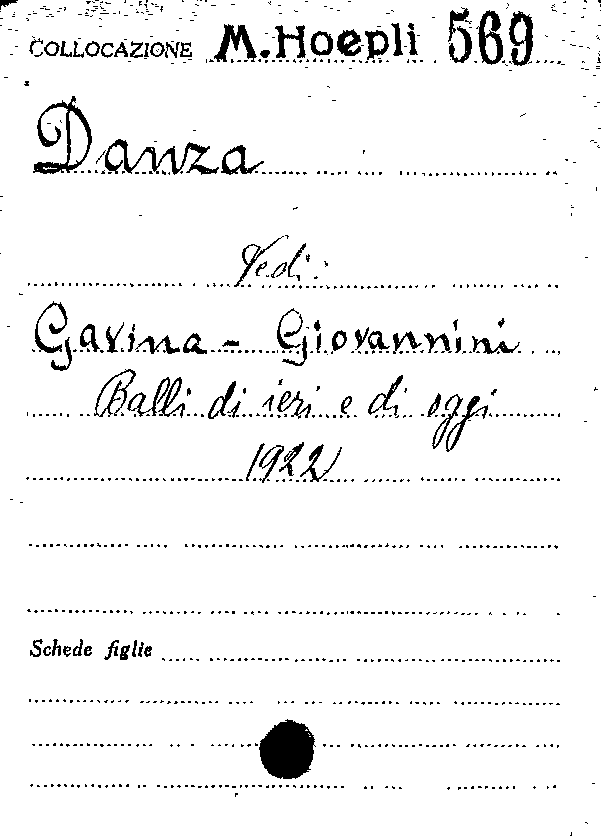 COLLOCAZIONE M. Hoepli 569
Danza
Vedi:
Gavina - Giovannini
Balli di ieri e di oggi
1922
Schede figlie